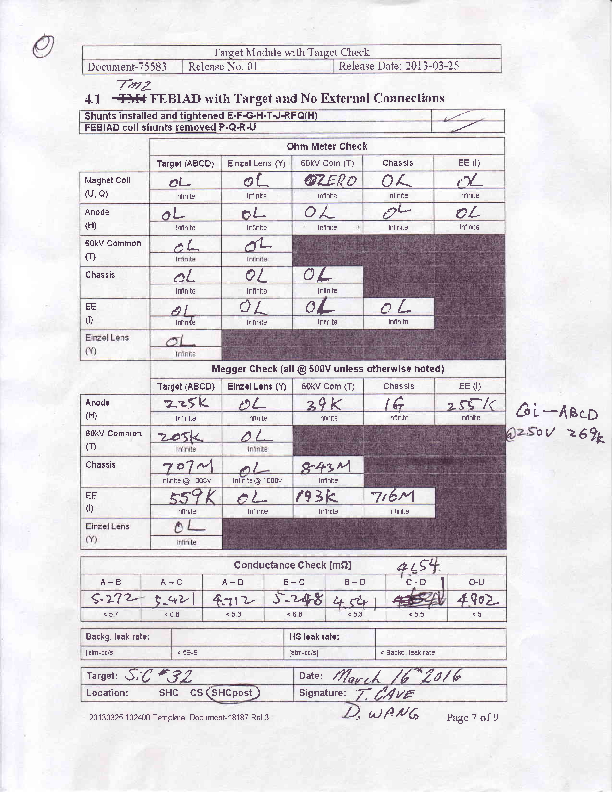 Target Module with Target Check
Document-75583 Release No. 01 Release Date: 2013-03-25
TM2
4.1 TM4 FEBIAD with Target and No External Connections
Shunts installed and tightened E-F-G-H-T-J-RFQ(H)
FEBIAD coil shunts removed P-Q-R-U
Ohm Meter Check
Target (ABCD) Einzel Lens (Y) 60kV Com (T) Chassis EE (I)
Magnet Coil OL OL ZERO OL OL
(U, Q) Infinite Infinite Infinite Infinite Infinite
Anode OL OL OL OL OL
(H) Infinite Infinite Infinite Infinite Infinite
60kV Common OL OL
(T) Infinite Infinite
Chassis OL OL OL
Infinite Infinite Infinite
EE OL OL OL OL
(I) Infinite Infinite Infinite Infinite
Einzel Lens OL
(Y) Infinite
Megger Check (all @ 500V unless otherwise noted)
Target (ABCD) Einzel Lens (Y) 60kV Com (T) Chassis EE (I)
Anode 225K OL 39K 1G 255K
(H) Infinite Infinite Infinite Infinite Infinite
Coi-ABCD
@250V 269k
60kV Common 205K OL
(T) Infinite Infinite
Chassis 707M OL 843M
Infinite @ 1000V Infinite @ 1000V Infinite
EE 559K OL 193K 716M
(I) Infinite Infinite Infinite Infinite
Einzel Lens OL
(Y) Infinite
Conductance Check [mΩ] 4.654
A – B A – C A – D B – C B – D C – D O-U
5.272 5.421 4.712 5.248 4.541 4.902
< 5.7 < 6.8 < 5.3 < 6.8 < 5.3 < 5.5 < 5
Backg. leak rate: HS leak rate:
[atm-cc/s] < 5E-8 [atm-cc/s] < Backg. leak rate
Target: SiC #32 Date: March 16th 2016
Location: SHC CS SHCpost Signature: T. CAVE
D. WANG
20130325 102400 Template: Document-18187 Rel.3 Page 7 of 9